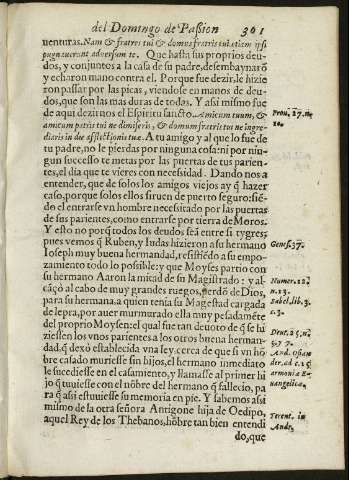 del Domingo de Passion 361
uenturas. Nam & fratres tui & domus fratris tui etiam ipsi
pugnauerunt aduersum te. Que hasta sus proprios deu-
dos, y conjuntos a la casa de su padre, desembaynarõ
y echaron mano contra el. Porque fue dezir, le hizie
ron passar por las picas, viendose en manos de deu-
dos, que son las mas duras de todas. Y assi mismo fue
de aqui dezirnos el Espiritu sancto. Amicum tuum, &
amicum patris tui ne dimiseris, & domum fratris tui ne ingre-
diaris in die afflictionis tuæ. A tu amigo y al que lo fue de
tu padre, no le pierdas por ninguna cosa: ni por nin-
gun successo te metas por las puertas de tus parien-
tes, el dia que te vieres con necessidad. Dando nos a
entender, que de solos los amigos viejos ay q̃ hazer
caso, porque solos ellos siruen de puerto seguro: siẽ-
do el entrarse vn hombre necessitado por las puertas
de sus parientes, como entrarse por tierra de Moros.
Y esto no porq̃ todos los deudos seã entre si tygres;
pues vemos q̃ Ruben, y Iudas hizieron a su hermano
Ioseph muy buena hermandad, resistiẽdo a su empo-
zamiento todo lo posible: y que Moyses partio con
su hermano Aaron la mitad de su Magistrado: y al-
cãçò al cabo de muy grandes ruegos, perdõ de Dios,
para su hermana, a quien tenia su Magestad cargada
de lepra, por auer murmurado ella muy pesadamẽte
del proprio Moysen: el qual fue tan deuoto de q̃ se hi
ziessen los vnos parientes a los otros buena herman-
dad, q̃ dexò establecida vna ley, cerca de que si vn hõ
bre casado muriesse sin hijos, el hermano inmediato
le sucediesse en el casamiento, y llamasse al primer hi
jo q̃ tuuiesse con el nõbre del hermano q̃ fallecio, pa
ra q̃ assi estuuiesse su memoria en pie. Y sabemos assi
mismo de la otra señora Antigone hija de Oedipo,
aquel Rey de los Thebanos, hõbre tan bien entendi
do, que
Prou. 27. nu.
10.
Genes. 37.
Numer. 12.
n. 13.
Sabel. lib. 3.
c. 3.
Deut. 25. nu.
5. 7
And. Osian
der. ad c. 25.
armonię E-
uangelicæ.
Terent. in
Andr.